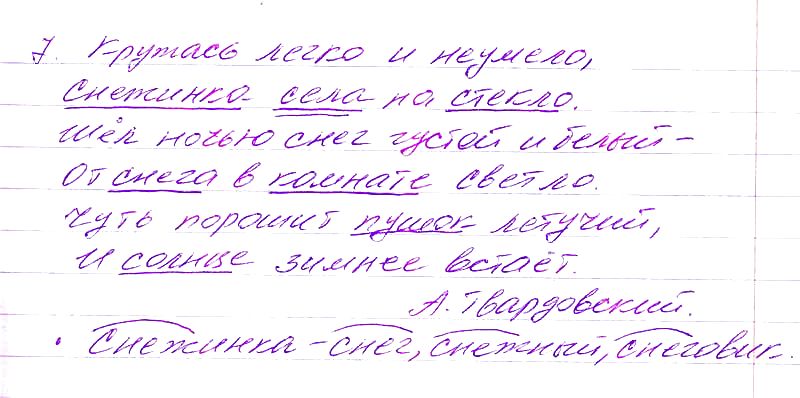 7. Кружась легко и неумело,
снежинка села на стекло.
Шёл ночью снег густой и белый -
От снега в комнате светло.
Чуть порошит пушок летучий,
И солнце зимнее встаёт.
А. Твардовский.
• Снежинка - снег, снежный, снеговик.